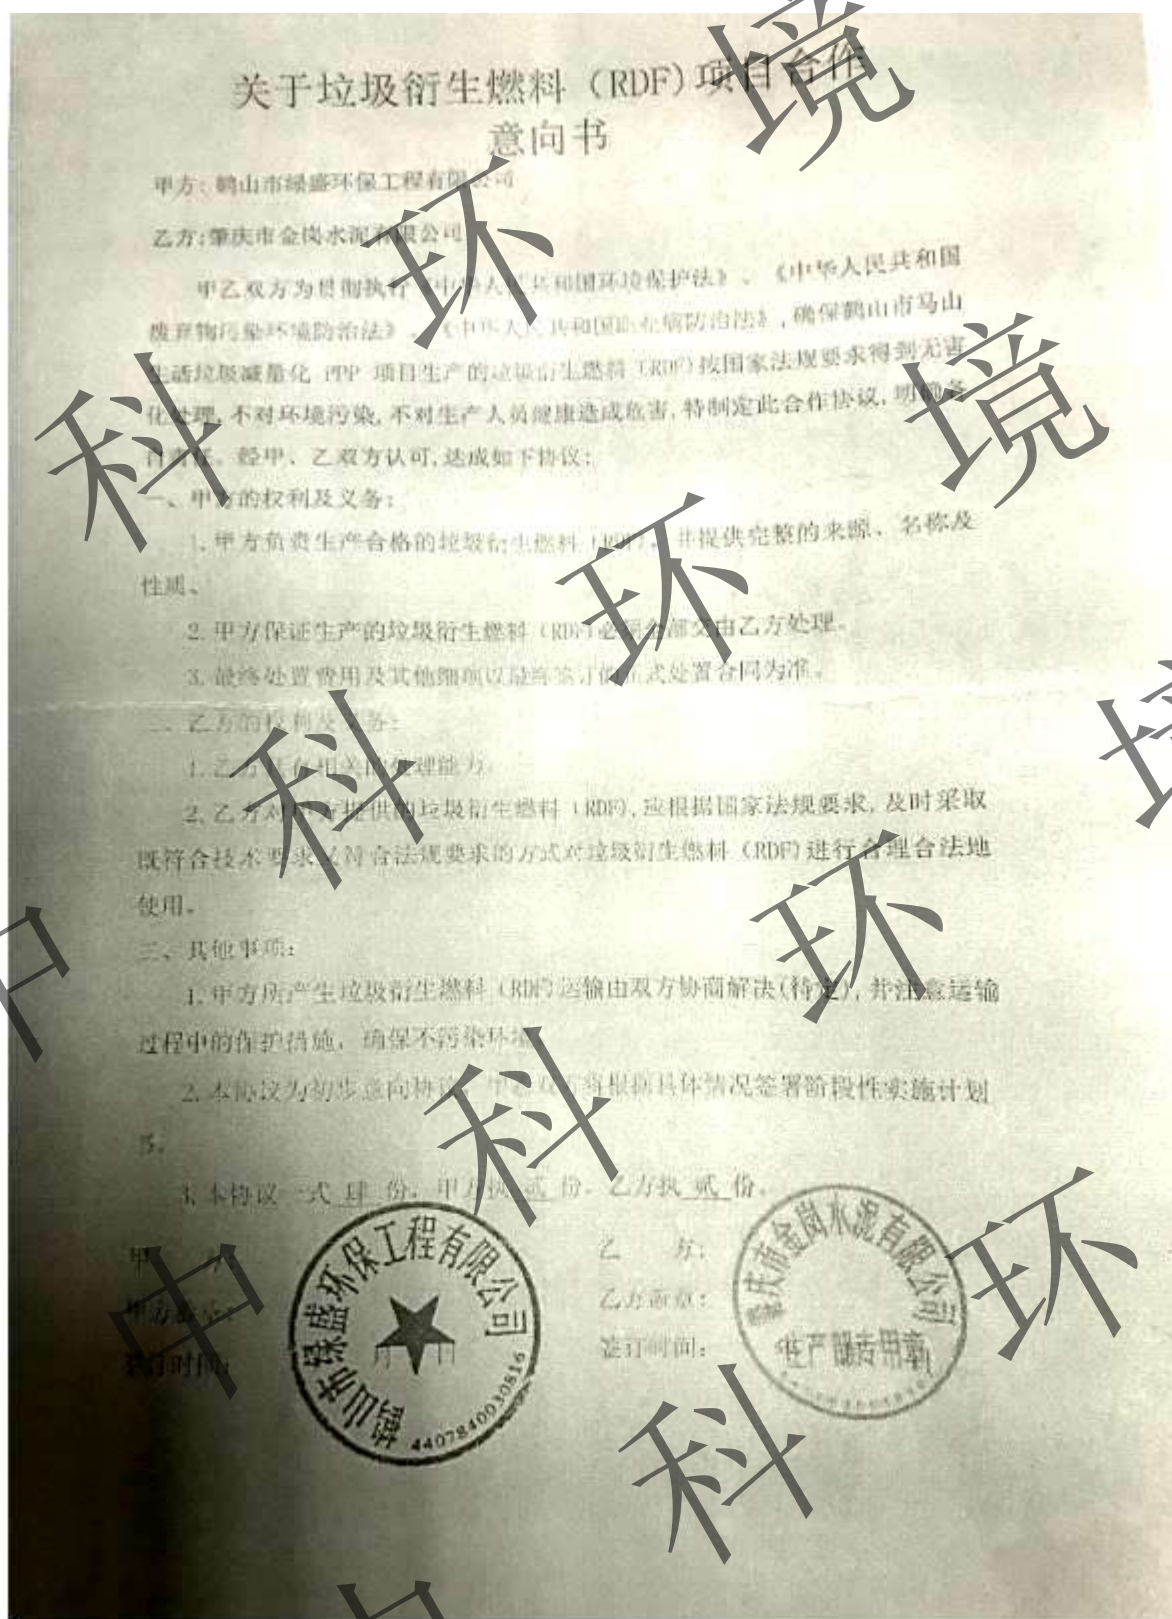 关于垃圾衍生燃料（RDF)项目合作
意向书
甲方：鹤山市绿盛环保工程有限公司
乙方:肇庆市金岗水泥有限公司
甲乙双方为贯彻执行《中华人民共和国环境保护法》、《中华人民共和国
废弃物污染环境防治法》、《中华人民共和国职业病防治法》,确保鹤山市马山
生活垃圾减量化 PPP 项目生产的垃圾衍生燃料（RDF)按国家法规要求得到无害
化处理,不对环境污染,不对生产人员健康造成危害,特制定此合作协议,明确各
自责任。经甲、乙双方认可,达成如下协议:
一、甲方的权利及义务:
1.甲方负责生产合格的垃圾衍生燃料（RDF)，并提供完整的来源、名称及
性质、
2.甲方保证生产的垃圾衍生燃料（RDF)必须全部交由乙方处理。
3.最终处置费用及其他细项以最终签订的正式处置合同为准。
二、乙方的权利及义务:
1.乙方具有相关的处理能力。
2.乙方对甲方提供的垃圾衍生燃料（RDF),应根据国家法规要求,及时采取
既符合技术要求又符合法规要求的方式对垃圾衍生燃料（RDF)进行合理合法地
使用。
三、其他事项:
1.甲方所产生垃圾衍生燃料（RDF)运输由双方协商解决(待定),并注意运输
过程中的保护措施，确保不污染环境。
2.本协议为初步意向协议，甲乙双方将根据具体情况签署阶段性实施计划
书。
3.本协议一式 肆 份，甲方执 贰 份，乙方执 贰 份。
甲 方: 乙 方:
甲方盖章: 乙方盖章:
签订时间: 月 日 签订时间:
鹤山市绿盛环保工程有限公司
4407840030816
肇庆市金岗水泥有限公司
生产部专用章
中科环境